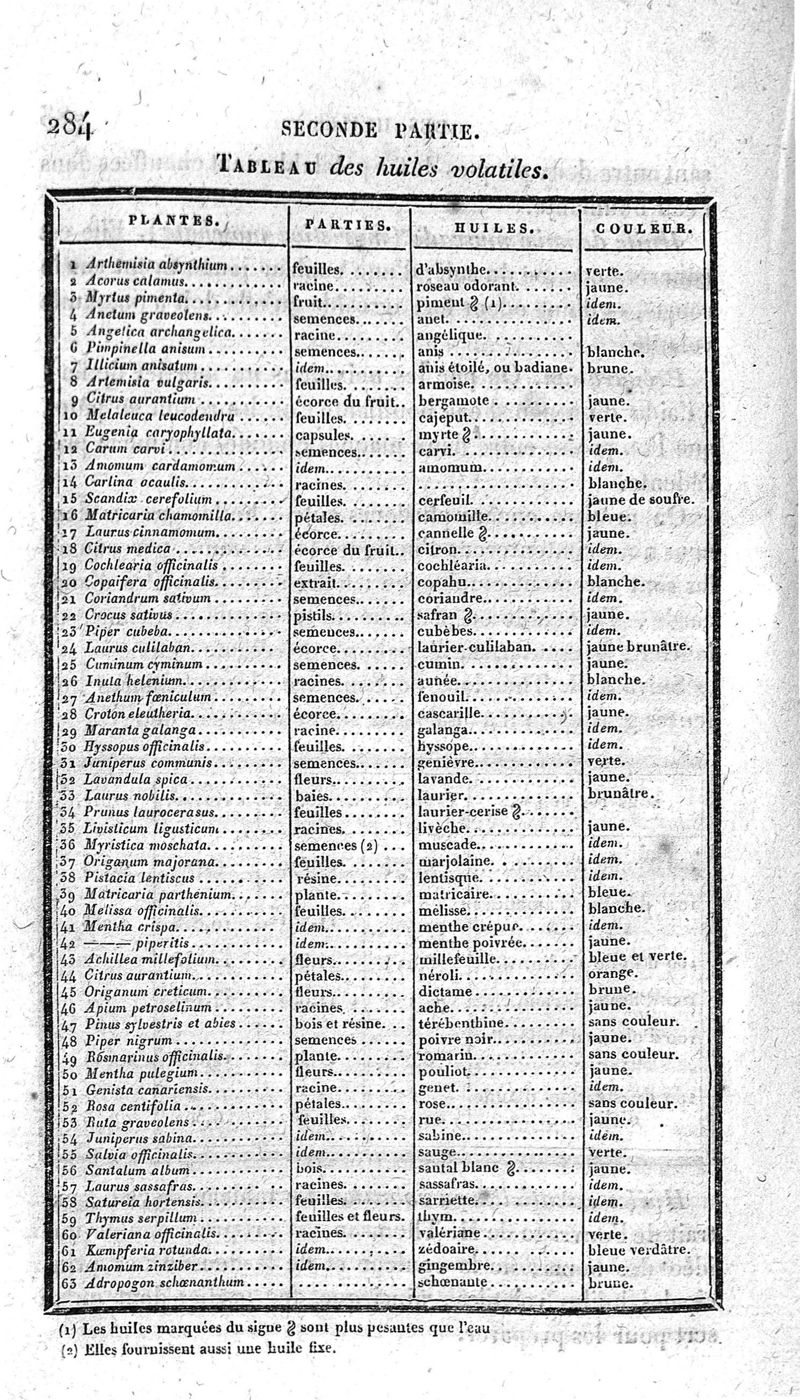 284
SECONDE PARTIE.
TABLEAU des huiles volatiles.
PLANTES. PARTIES. HUILES. COULEUR.
1 Arthemisia absynthium....... feuilles........ d'absynthe........... verte.
2 Acorus calamus............. racine......... roseau odorant....... jaune.
3 Myrtus pimenta............. fruit.......... piment ƺ (1)......... idem.
4 Anetum graveolens.......... semences....... anet................ idem.
5 Angelica archangelica....... racine......... angélique...........
6 Pimpinella anisum.......... semences....... anis ............... blanche.
7 Illicium anisatum........... idem........... anis étoilé, ou badiane. brune.
8 Artemisia vulgaris.......... feuilles........ armoise.............
9 Citrus aurantium ........... écorce du fruit.. bergamote .......... jaune.
10 Melaleuca leucodendru ...... feuilles........ cajeput............. verte.
11 Eugenia caryophyllata....... capsules....... myrte ƺ............. jaune.
12 Carum carvi............... semences....... carvi............... idem.
13 Amomum cardamomum ...... idem........... amomum............ idem.
14 Carlina ocaulis............. racines......... .................... blanche.
15 Scandix cerefolium.......... feuilles........ cerfeuil............. jaune de soufre.
16 Matricaria chamomilla....... pétales......... camomille........... bleue.
17 Laurus cinnamomum......... écorce......... cannelle ƺ........... jaune.
18 Citrus medica .............. écorce du fruit.. citron............... idem.
19 Cochlearia officinalis ........ feuilles........ cochléaria........... idem.
20 Copaifera officinalis......... extrait......... copahu.............. blanche.
21 Coriandrum sativum ........ semences....... coriandre............ idem.
22 Crocus sativus ............. pistils.......... safran ƺ............. jaune.
23 Piper cubeba............... semences....... cubèbes............. idem.
24 Laurus culilaban............ écorce......... laurier-culilaban..... jaune brunâtre.
25 Cuminum cyminum......... semences....... cumin.............. jaune.
26 Inula helenium............. racines......... aunée............... blanche.
27 Anethum fœniculum......... semences....... fenouil.............. idem.
28 Croton eleutheria........... écorce......... cascarille............ jaune.
29 Maranta galanga............ racine......... galanga............. idem.
30 Hyssopus officinalis......... feuilles........ hyssope............. idem.
31 Juniperus communis......... semences....... genièvre............. verte.
32 Lavandula spica ............ fleurs.......... lavande............. jaune.
33 Laurus nobilis.............. baies........... laurier.............. brunâtre.
34 Prunus laurocerasus......... feuilles........ laurier-cerise ƺ......
35 Livisticum ligusticum........ racines......... livèche.............. jaune.
36 Myristica moschata.......... semences (2) ... muscade............. idem.
37 Origanum majorana......... feuilles........ marjolaine........... idem.
38 Pistacia lentiscus ........... résine.......... lentisque............ idem.
39 Matricaria parthenium....... plante.......... matricaire........... bleue.
40 Melissa officinalis........... feuilles........ mélisse.............. blanche.
41 Mentha crispa.............. idem........... menthe crépue....... idem.
42 ——— piperitis............. idem........... menthe poivrée....... jaune.
43 Achillea millefolium......... fleurs.......... millefeuille.......... bleue et verte.
44 Citrus aurantium............ pétales......... néroli............... orange.
45 Origanum creticum.......... fleurs.......... dictame............. brune.
46 Apium petroselinum ........ racines......... ache................ jaune.
47 Pinus sylvestris et abies ...... bois et résine. ... térébenthine......... sans couleur.
48 Piper nigrum .............. semences ...... poivre noir.......... jaune.
49 Rosmarinus officinalis........ plante.......... romarin............. sans couleur.
50 Mentha pulegium........... fleurs.......... pouliot.............. jaune.
51 Genista canariensis.......... racine.......... genet............... idem.
52 Rosa centifolia ............. pétales......... rose................. sans couleur.
53 Ruta graveolens ............ feuilles......... rue................. jaune.
54 Juniperus sabina............ idem........... sabine............... idem.
55 Salvia officinalis............ idem........... sauge............... verte.
56 Santalum album............ bois............ santal blanc ƺ....... jaune.
57 Laurus sassafras............ racines......... sassafras............ idem.
58 Satureia hortensis........... feuilles........ sarriette............ idem.
59 Thymus serpillum ........... feuilles et fleurs. thym................ idem.
60 Valeriana officinalis......... racines......... valériane............ verte.
61 Kæmpferia rotunda.......... idem........... zédoaire............. bleue verdâtre.
62 Amomum zinziber........... idem........... gingembre........... jaune.
63 Adropogon schœnanthum..... ............... schœnante ........... brune.
(1) Les huiles marquées du signe ƺ sont plus pesantes que l'eau
(2) Elles fournissent aussi une huile fixe.